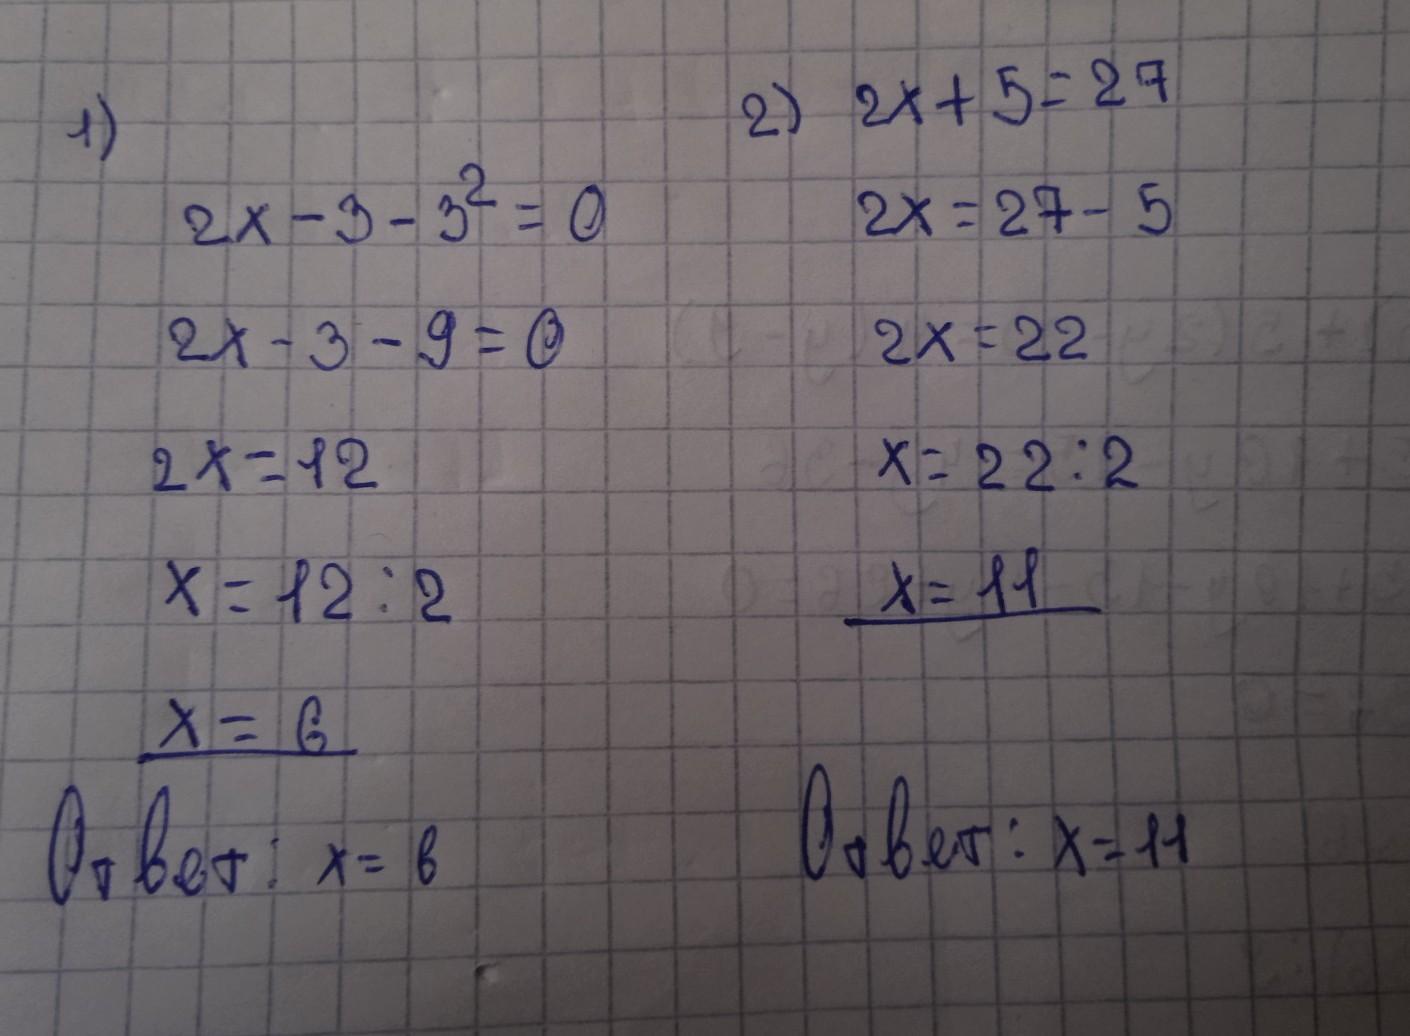 1)
2x - 3 - 3² = 0
2x - 3 - 9 = 0
2x = 12
x = 12 : 2
x = 6
Ответ: x = 6
2) 2x + 5 = 27
2x = 27 - 5
2x = 22
x = 22 : 2
x = 11
Ответ: x = 11